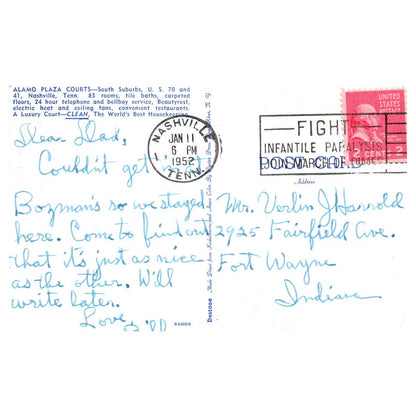 ALAMO PLAZA COURTS—South Suburbs, U. S. 70 and
41, Nashville, Tenn. 85 rooms, tile baths, carpeted
floors, 24 hour telephone and bellboy service, Beautyrest,
electric heat and ceiling fans, convenient restaurants.
A Luxury Court—CLEAN, The World's Best Housekeeping.
NASHVILLE
JAN 11
6 PM
1952
TENN.
FIGHT
INFANTILE PARALYSIS
JOIN MARCH OF DIMES
UNITED STATES
POSTAGE
2
POST CARD
Address
Dear Dad,
Couldn't get
Bozman's so we stayed
here. Come to find out
that it's just as nice
as the other. Will
write later.
Love
Mr. Verlin J Harrold
2925 Fairfield Ave.
Fort Wayne
Indiana
55009
Dextone